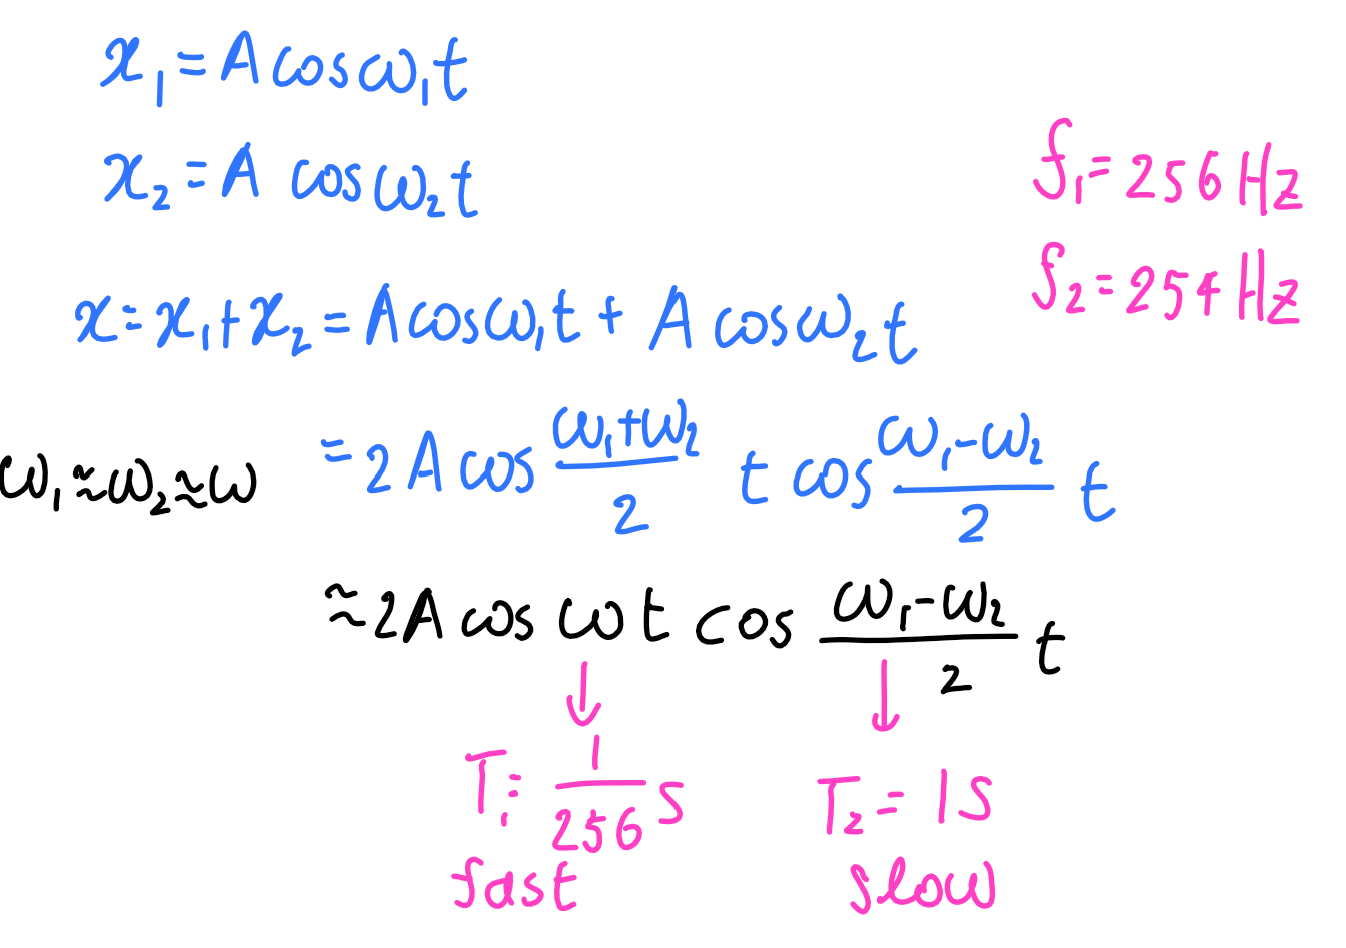 x₁ = A cos ω₁t
x₂ = A cos ω₂t
f₁ = 256 Hz
f₂ = 254 Hz
x = x₁ + x₂ = A cos ω₁t + A cos ω₂t
= 2A cos (ω₁+ω₂)/2 t cos (ω₁-ω₂)/2 t
ω₁ ≈ ω₂ ≈ ω
≈ 2A cos ωt cos (ω₁-ω₂)/2 t
↓ ↓
T₁ = 1/256 s T₂ = 1 s
fast slow